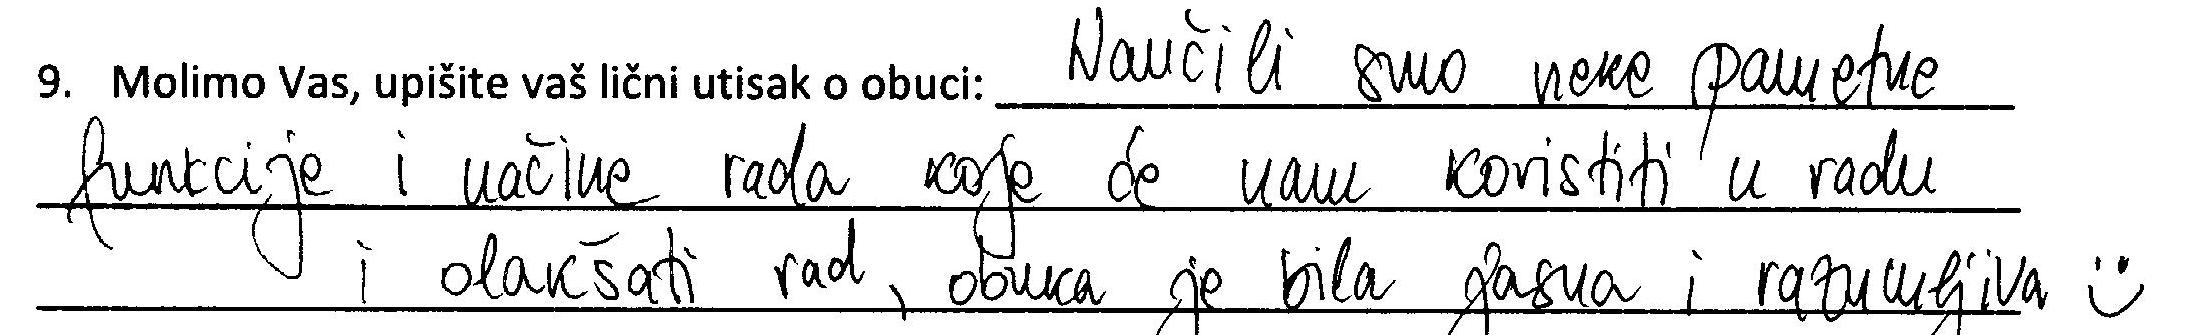 9. Molimo Vas, upišite vaš lični utisak o obuci: Naučili smo neke pametne
funkcije i načine rada koje će nam koristiti u radu
i olakšati rad, obuka je bila jasna i razumljiva :)